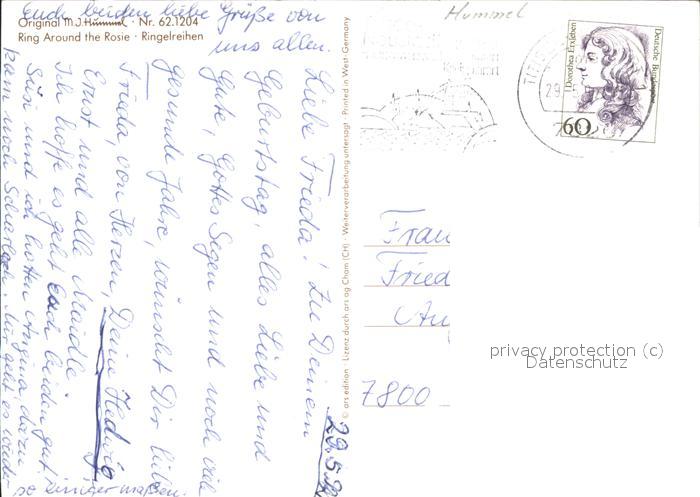 Original M.J. Hummel · Nr. 62.1204
Ring Around the Rosie · Ringelreihen
29.5.
Liebe Frieda! Zu Deinem
Geburtstag, alles Liebe und
Gute, Gottes Segen und noch viele
gesunde Jahre, wünscht Dir liebe
Frieda, von Herzen, Deine Hedwig
Ernst und alle Maidle.
Ich hoffe es geht Euch beiden gut.
Susi und ich hatten Angina, dazu
kam noch Scharlach. Mir geht es wieder
so einigermaßen.
Euch beiden liebe Grüße von
uns allen.
© ars edition · Lizenz durch ars ag Cham (CH) · Weiterverarbeitung untersagt · Printed in West-Germany
Hummel
29.5
Dorothea Erxleben
Deutsche Bundespost
60
Frau
Fried
7800
privacy protection (c)
Datenschutz